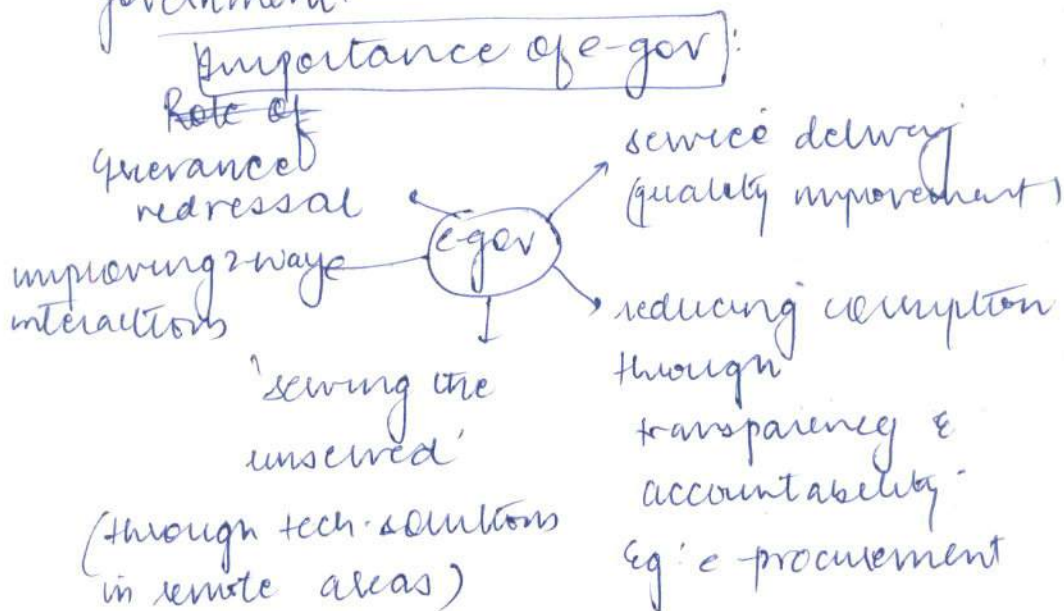 government.
Importance of e-gov:
Role of
Grievance
redressal
improving 2-way
interactions
e-gov
service delivery
(quality improvement)
reducing corruption
through
transparency &
accountability
Eg: e-procurement
'serving the
unserved'
(through tech. solutions
in remote areas)